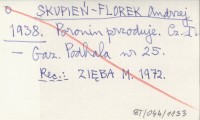 SKUPIEŃ-FLOREK Andrzej
1938. Poronin przoduje. Cz. I.
— Gaz. Podhala nr 25.
Rec.: ZIĘBA M. 1972.
BT/044/1133